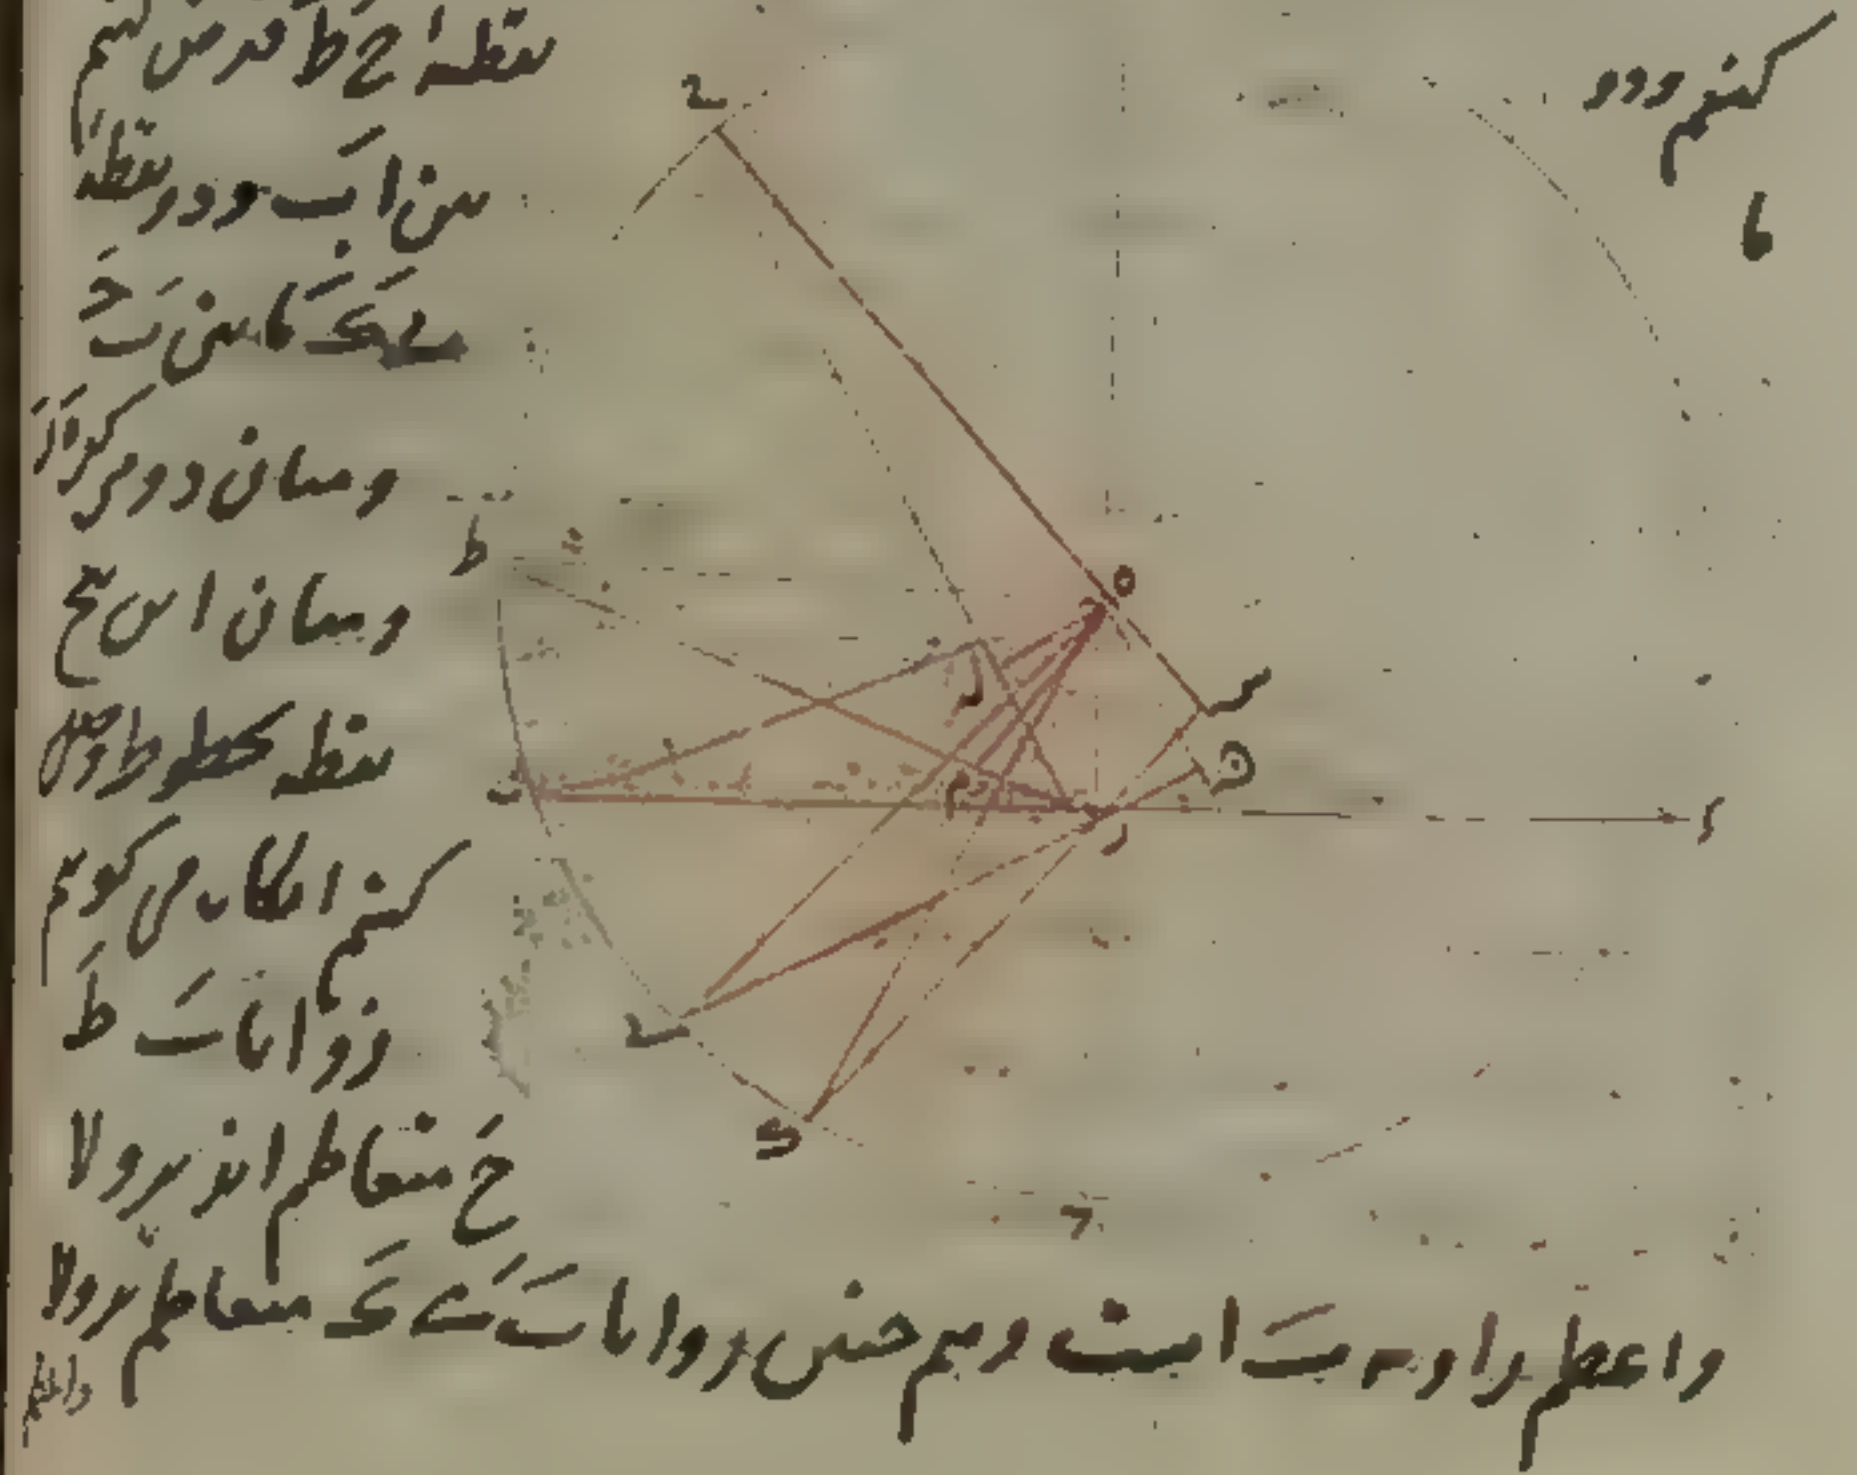 کنیم و دو
نقطهٔ ح ط فرض کنیم
ما
بین ا ب و دو نقطه
ی ک ما بین ب ج
و میان دو مرکز ه ز
و میان این پنج
نقطه بخطوط وصل
کنیم انکاه می کویم
زوایا ب ط
ح متعاظم اند بر ولا
واعظم زاویه ب است وهم چنین زوایا ب ی ک متعاظم بر ولا
واعظم
ح
ط
ه
س
ن
ر
م
ب
ز
ا
ی
ک
ج